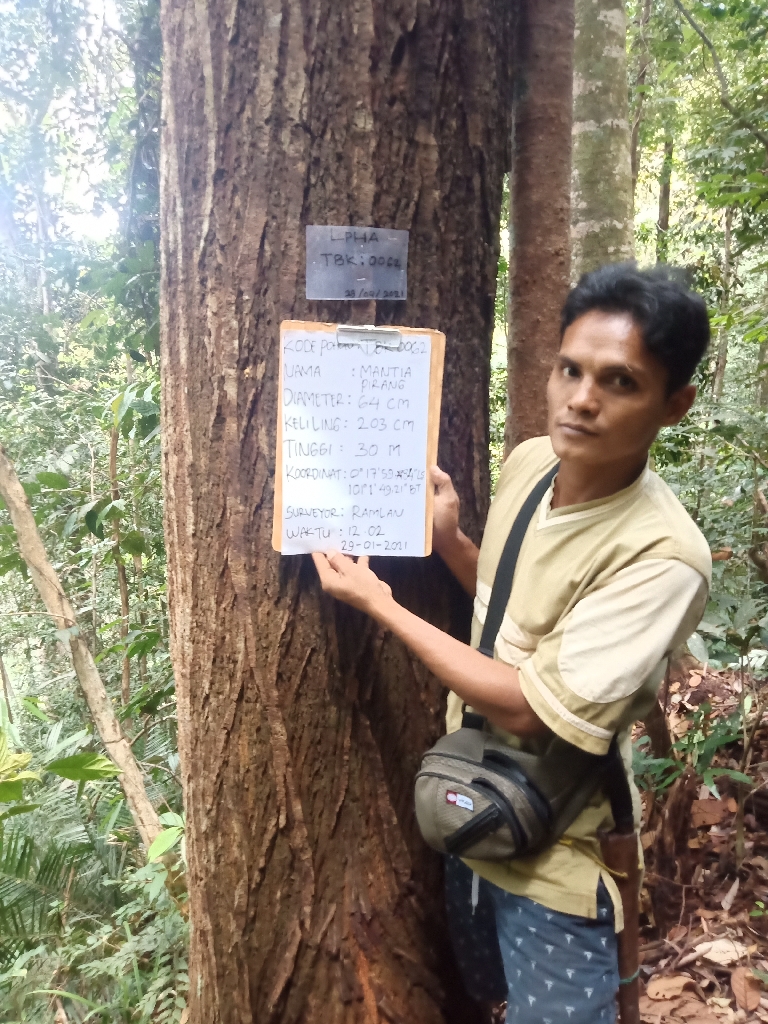 LPHA
TBK:0062
28/01/2021
KODE POHON TBK 0062
NAMA : MANTIA
PIRANG
DIAMETER: 64 CM
KELILING: 203 CM
TINGGI : 30 M
KOORDINAT: 0°17'59
101°1'49.21"BT
SURVEYOR: RAMLAN
WAKTU : 12 02
29-01-2021